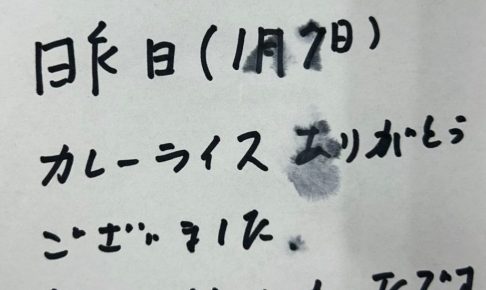 昨日(1月7日)
カレーライス ありがとう
ございました.